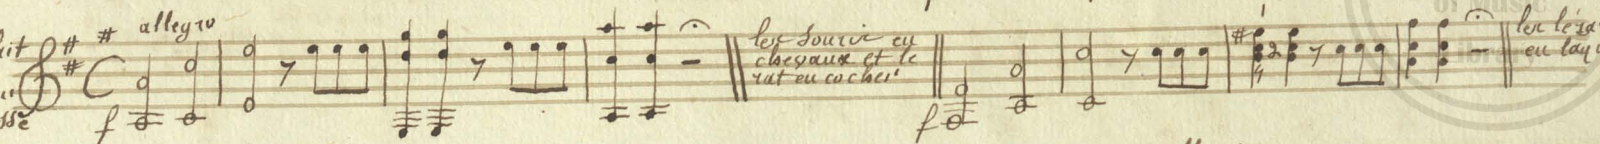 allegro
f
les souris en
chevaux et le
rat en cocher
f
1
2
4
les léza
en laq